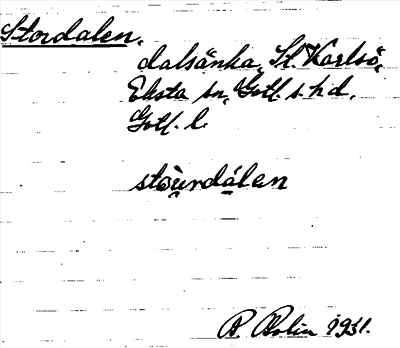 Stordalen,
dalsänka, St. Karlsö,
Eksta sn, Gotl. s. hd,
Gotl. l.
stòu̯rdá̠len
P Bolin 1931.